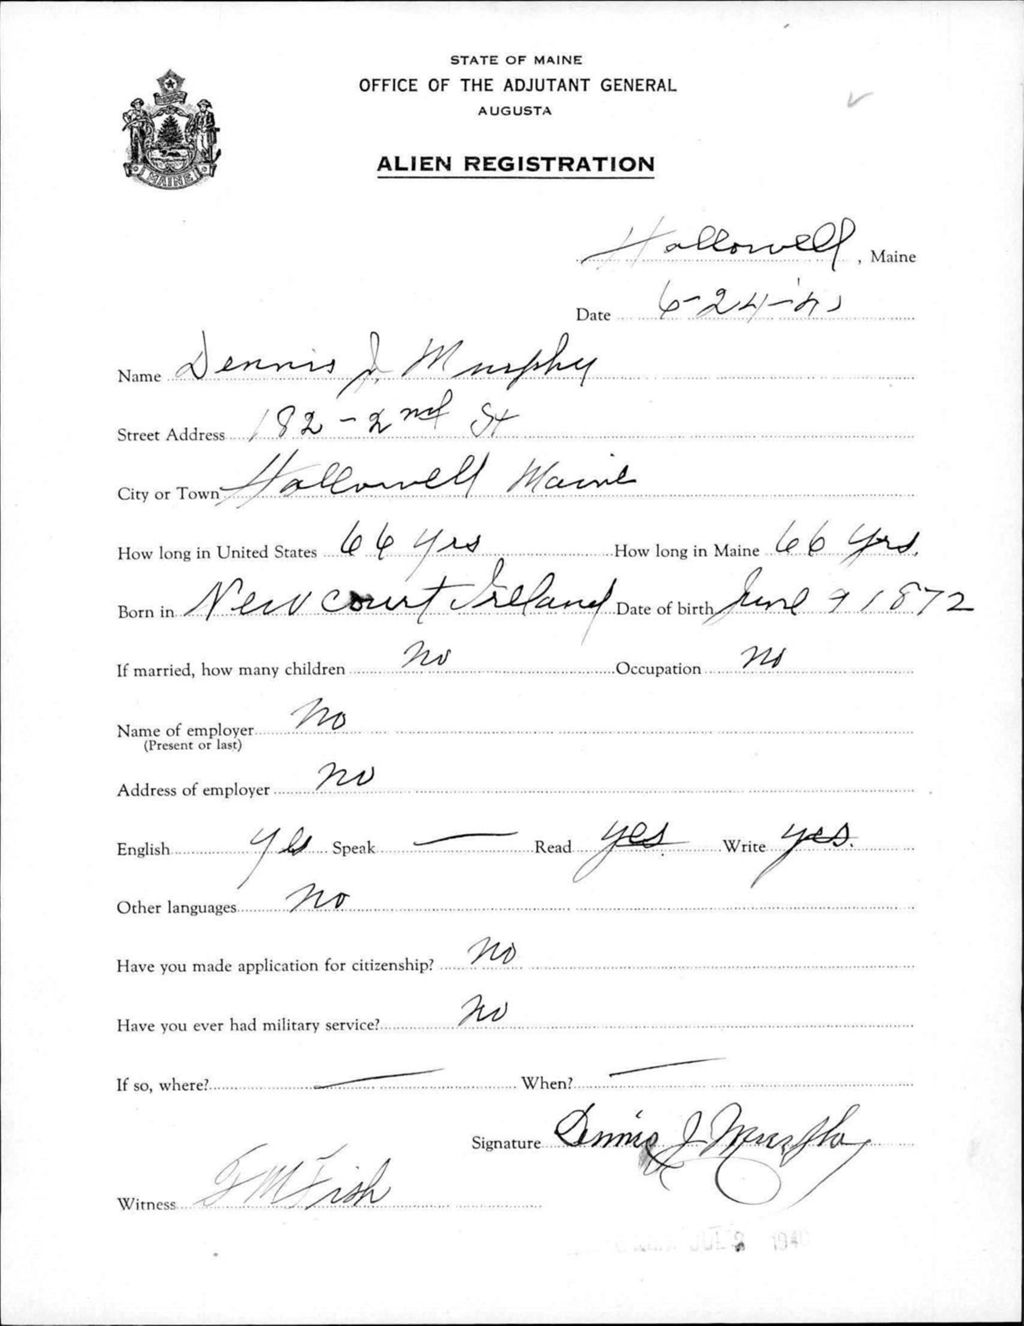 STATE OF MAINE
OFFICE OF THE ADJUTANT GENERAL
AUGUSTA
ALIEN REGISTRATION
MAINE
Hallowell, Maine
Date 6-24-40
Name Dennis J. Murphy
Street Address 182-2nd St
City or Town Hallowell Maine
How long in United States 66 Yrs How long in Maine 66 Yrs.
Born in New court Ireland Date of birth June 9 1872
If married, how many children No Occupation No
Name of employer No
(Present or last)
Address of employer No
English Yes Speak — Read Yes Write Yes.
Other languages No
Have you made application for citizenship? No
Have you ever had military service? No
If so, where? — When? —
Signature Dennis J Murphy
Witness F M Fish
JUL 2 1940